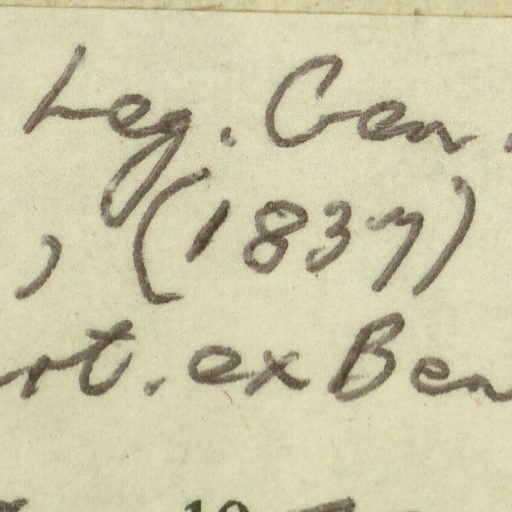 Leg. Gen.
, (1837)
rt. ex Ben
19